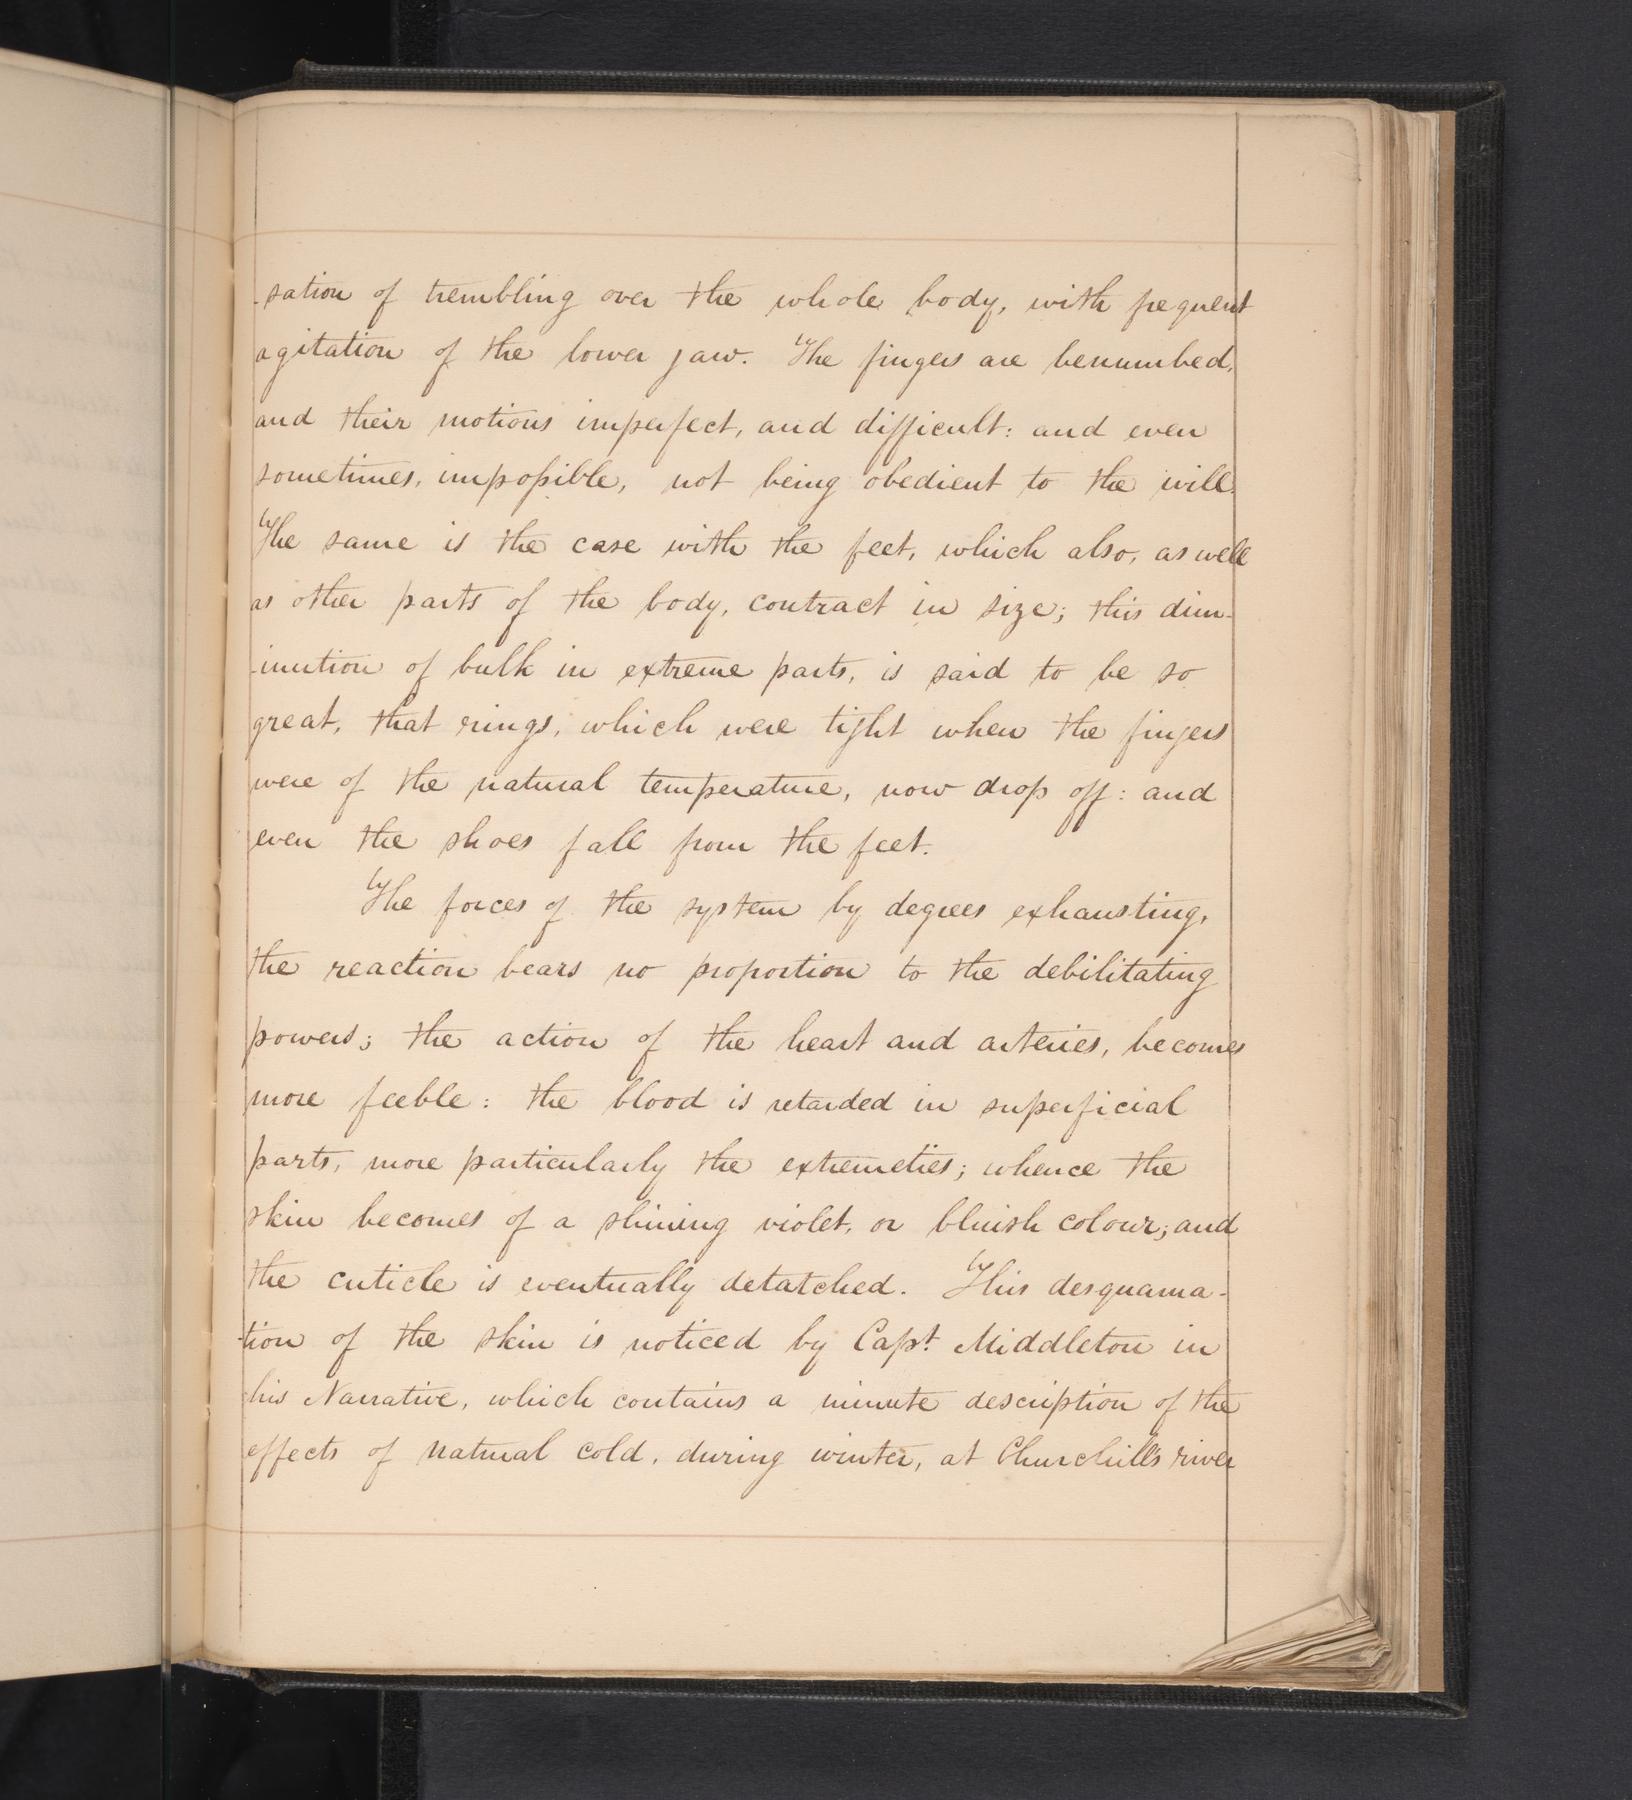 -sation of trembling over the whole body, with frequent
agitation of the lower jaw. The fingers are benumbed,
and their motions imperfect, and difficult: and even
sometimes, impossible, not being obedient to the will.
The same is the case with the feet, which also, as well
as other parts of the body, contract in size; this dim-
-inution of bulk in extreme parts, is said to be so
great, that rings, which were tight when the fingers
were of the natural temperature, now drop off: and
even the shoes fall from the feet.
The forces of the system by degrees exhausting,
the reaction bears no proportion to the debilitating
powers; the action of the heart and arteries, becomes
more feeble: the blood is retarded in superficial
parts, more particularly the extremeties; whence the
skin becomes of a shining violet, or bluish colour; and
the cuticle is eventually detatched. This desquama-
-tion of the skin is noticed by Capt. Middleton in
his Narrative, which contains a minute description of the
effects of natural cold, during winter, at Churchill's river